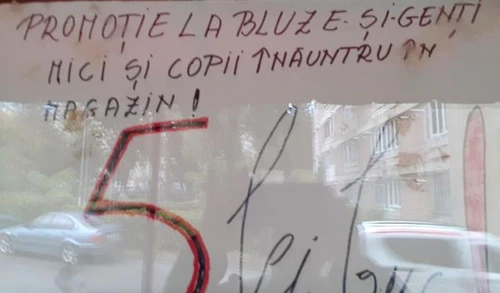 PROMOȚIE LA BLUZE ȘI GENȚI
MICI ȘI COPII ÎNĂUNTRU ÎN
MAGAZIN!
5 lei buc!